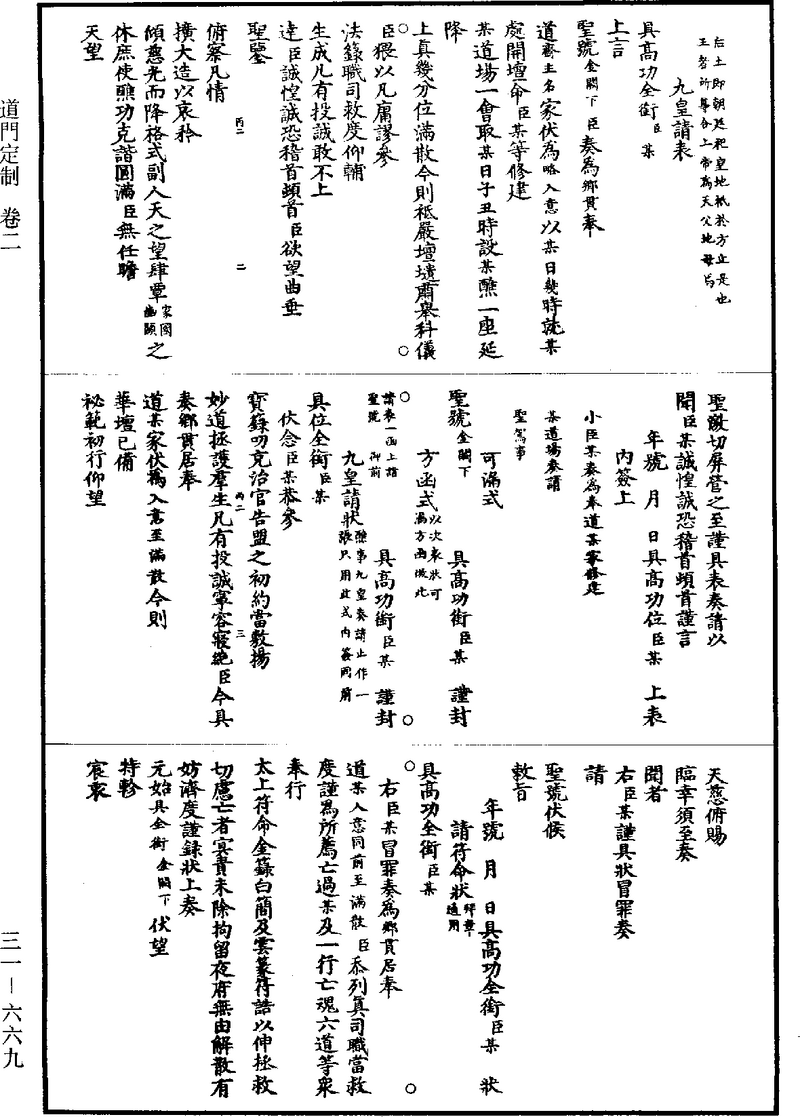 道門定制 卷二
三一－六六九
后土即朝廷祀皇地祇於方丘是也
王者所尊合上帝為天父地母焉
九皇請表
具高功全銜臣某
上言
聖號金闕下臣奏為鄉貫奉
道齋主名家伏為略入意以某日幾時就某
處開壇命臣某等修建
某道場一會取某日子丑時設某醮一座延
降
上真幾分位滿散今則祗嚴壇墠肅舉科儀
臣猥以凡庸謬參
法籙職司救度仰輔
生成凡有投誠敢不上
達臣誠惶誠恐稽首頓首臣欲望曲垂
聖鑒
俯察凡情
丙二 二
擴大造以哀矜
傾慈光而降格式副人天之望肆覃家國幽顯之
休庶使醮功克諧圓滿臣無任瞻
天望
聖激切屏營之至謹具表奏請以
聞臣某誠惶誠恐稽首頓首謹言
年號 月 日具高功位臣某 上表
內簽上
小臣某奏為奉道某家修建
某道場奏請
聖駕事
可漏式
聖號金闕下 具高功銜臣某 謹封
方函式以次表狀可漏方函倣此
請表一函上詣
聖號 御前 具高功銜臣某 謹封
九皇請狀醮事九皇奏請止作一張只用此式內簽同前
具位全銜臣某
伏念臣某恭參
寶籙叨克治官告盟之初約當敷揚
丙二 三
妙道拯護羣生凡有投誠寧容寢絶臣今具
奏鄉貫居奉
道某家伏為入意至滿散今則
華壇已備
祕範初行仰望
天慈俯賜
臨幸須至奏
聞者
右臣某謹具狀冒罪奏
請
聖號伏候
敕旨
年號 月 日具高功全銜臣某 狀
請符命狀拜章通用
具高功全銜臣某
右臣某冒罪奏為鄉貫居奉
道某入意同前至滿散臣忝列真司職當救
度謹為所薦亡過某及一行亡魂六道等衆
奉行
太上符命金籙白簡及雲篆符誥以伸拯救
切慮亡者冥責未除拘留夜府無由解散有
妨濟度謹錄狀上奏
元始具全銜金闕下伏望
特軫
宸衷